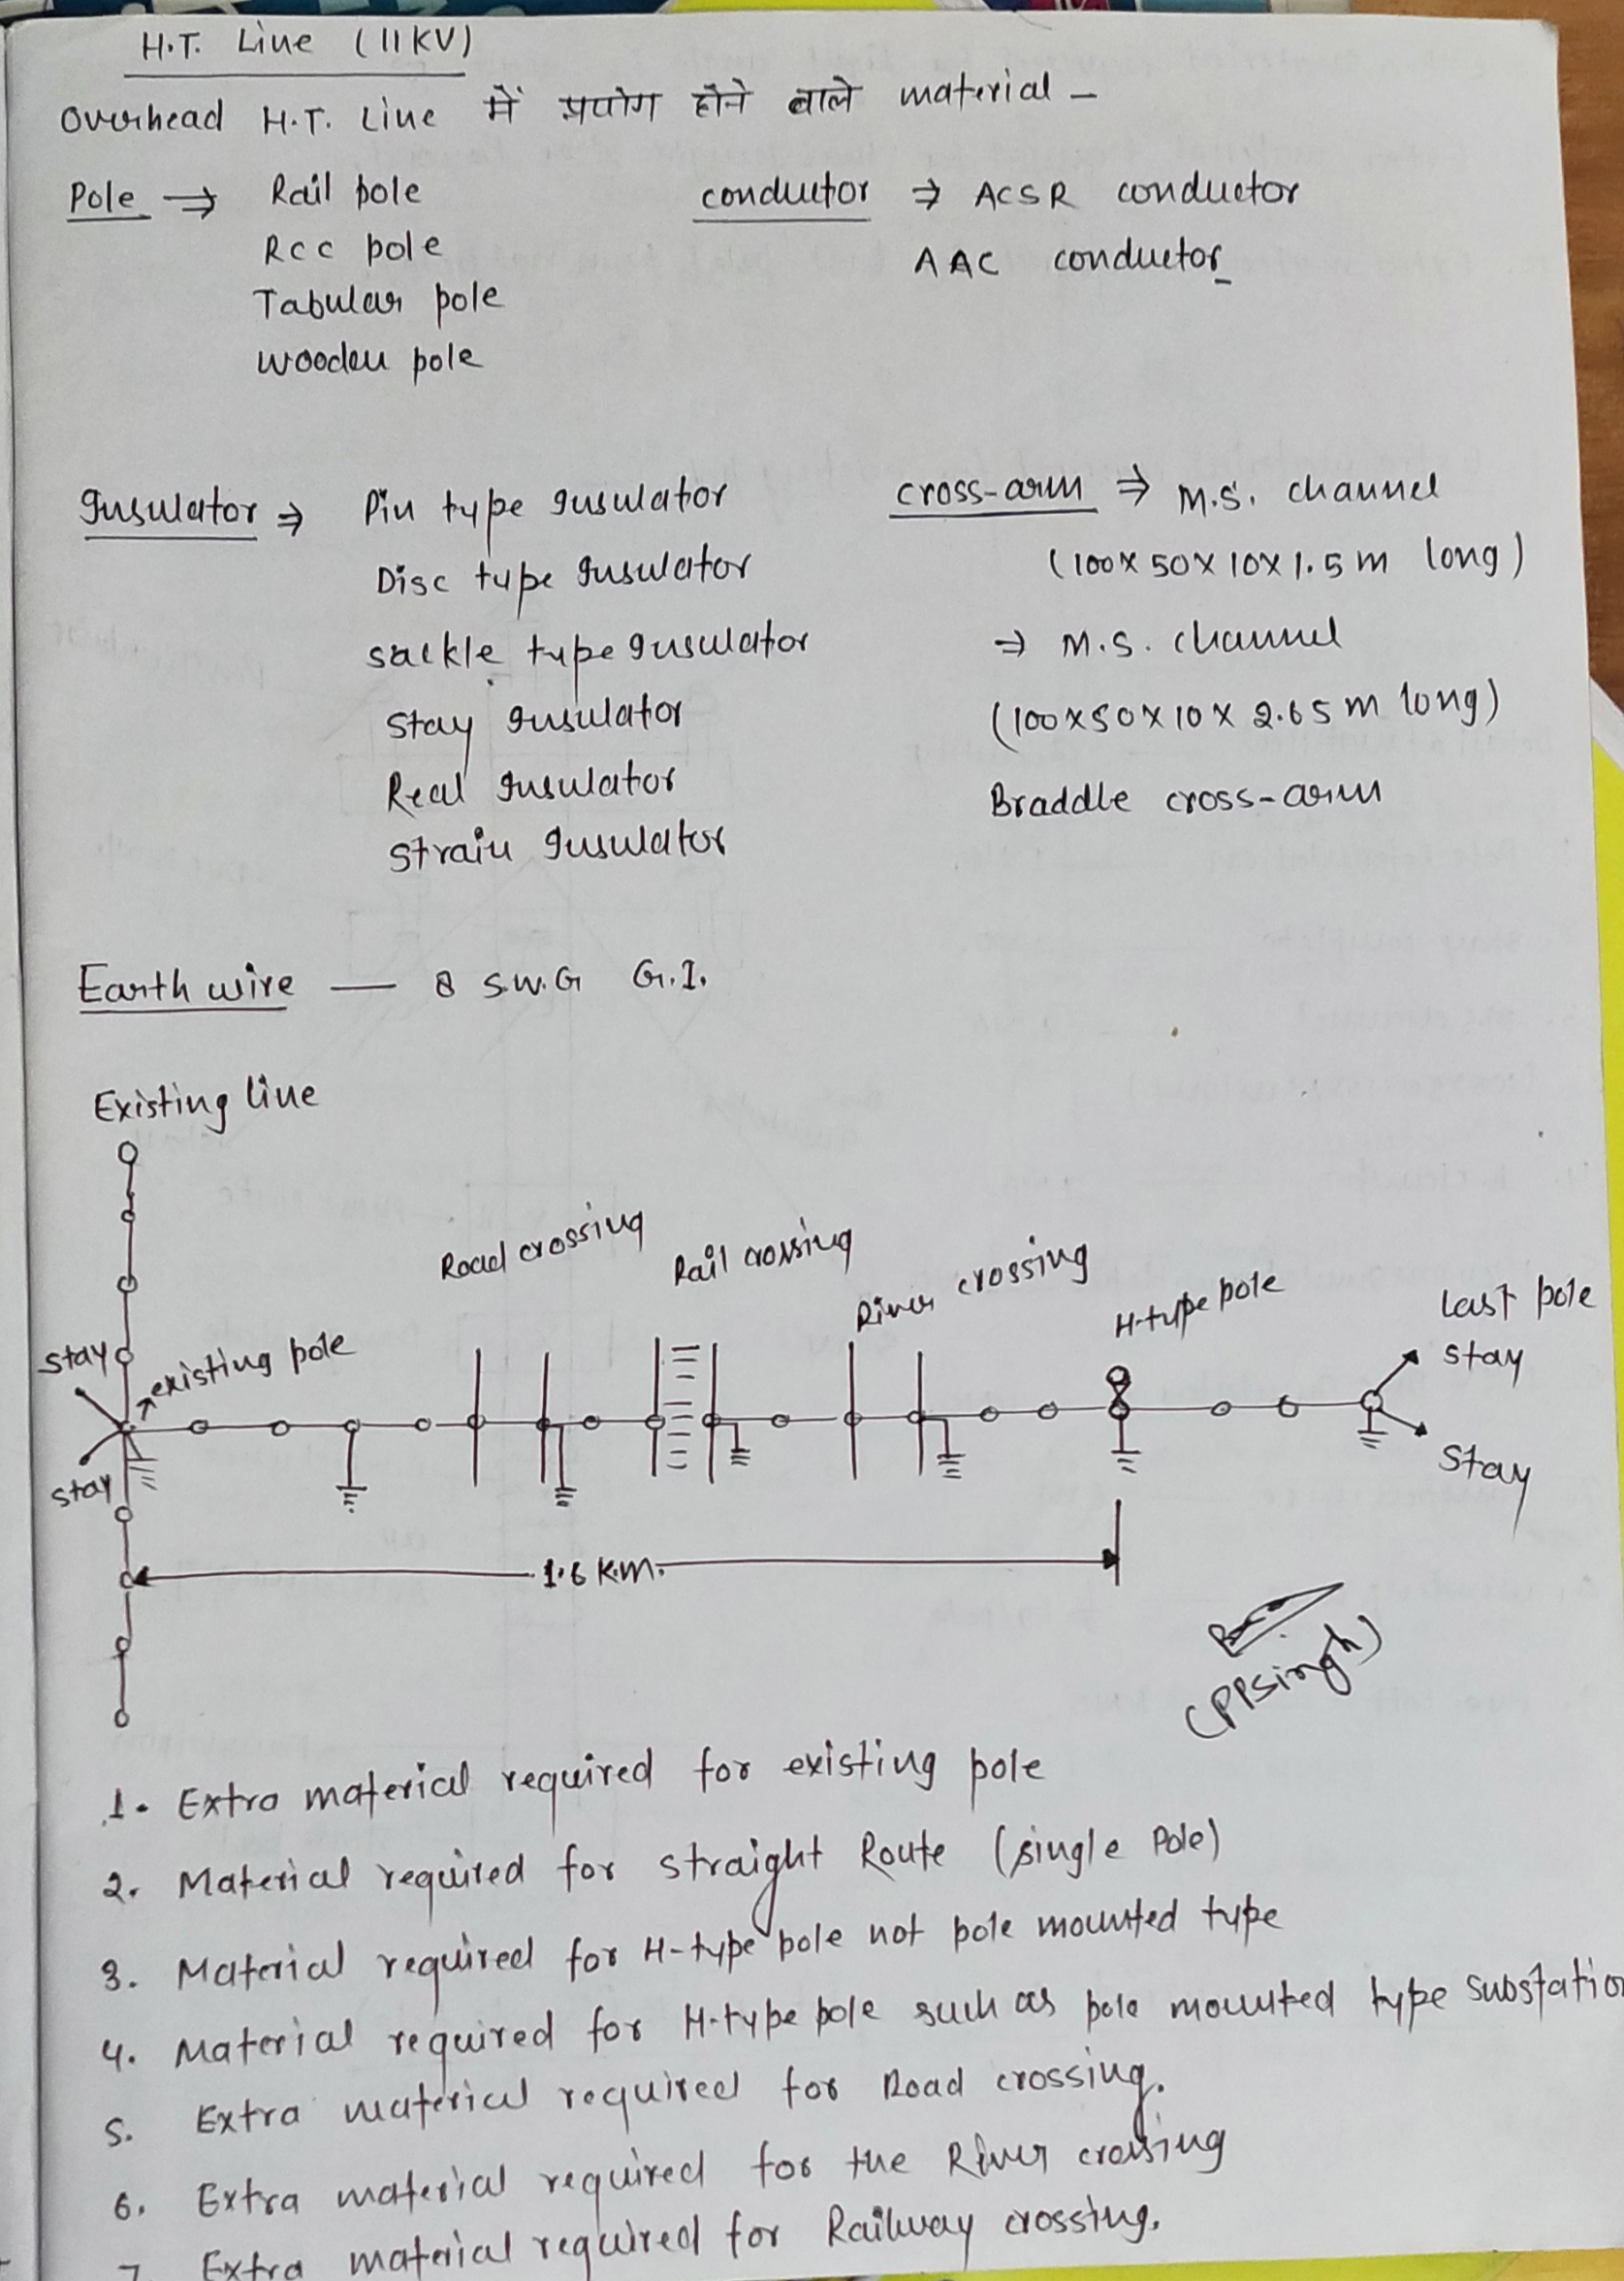 H.T. Line (11KV)
Overhead H.T. Line में प्रयोग होने वाले material -
Pole → Rail pole
Rcc pole
Tabular pole
Wooden pole
conductor ⇒ ACSR conductor
AAC conductor
Insulator ⇒ Pin type Insulator
Disc type Insulator
sackle type Insulator
Stay Insulator
Real Insulator
Strain Insulator
cross-arm ⇒ M.S. channel
(100 x 50 x 10 x 1.5 m long)
⇒ M.S. channel
(100 x 50 x 10 x 2.65 m long)
Braddle cross-arm
Earth wire — 8 S.W.G G.I.
Existing line
Road crossing
Rail crossing
River crossing
H-type pole
Last pole
stay
existing pole
stay
stay
Stay
1.6 K.m.
(PPSingh)
1. Extra material required for existing pole
2. Material required for straight Route (single Pole)
3. Material required for H-type pole not pole mounted type
4. Material required for H-type pole such as pole mounted type substation
5. Extra material required for Road crossing.
6. Extra material required for the River crossing
7. Extra material required for Railway crossing.